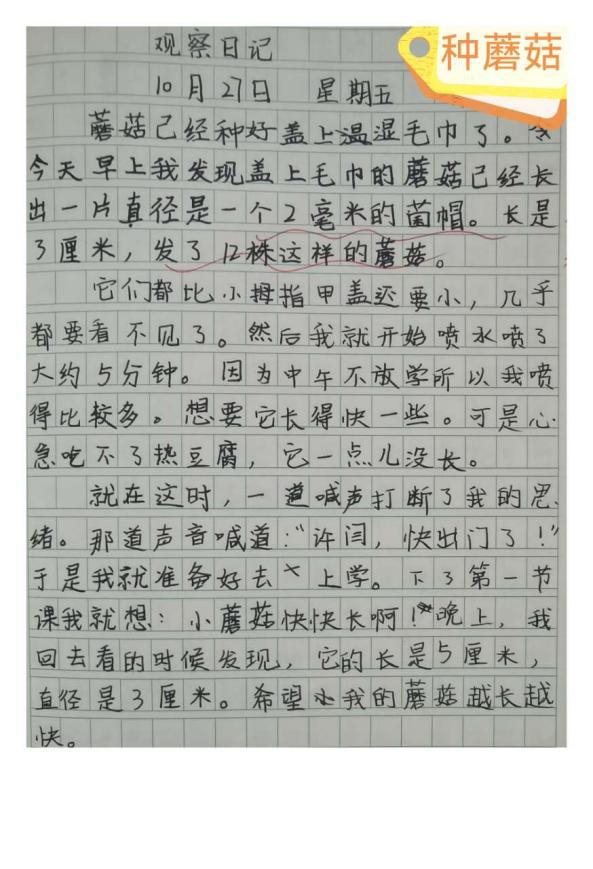 种蘑菇
观察日记
10月27日 星期五
蘑菇已经种好盖上温湿毛巾了。令
今天早上我发现盖上毛巾的蘑菇已经长
出一片直径是一个2毫米的菌帽。长是
3厘米，发了12株这样的蘑菇。
它们都比小拇指甲盖还要小，几乎
都要看不见了。然后我就开始喷水喷了
大约5分钟。因为中午不放学所以我喷
得比较多。想要它长得快一些。可是心
急吃不了热豆腐，它一点儿没长。
就在这时，一道喊声打断了我的思
绪。那道声音喊道：“许闫，快出门了！”
于是我就准备好去上学。下了第一节
课我就想：小蘑菇快快长啊！晚上，我
回去看的时候发现，它的长是5厘米，
直径是3厘米。希望我的蘑菇越长越
快。